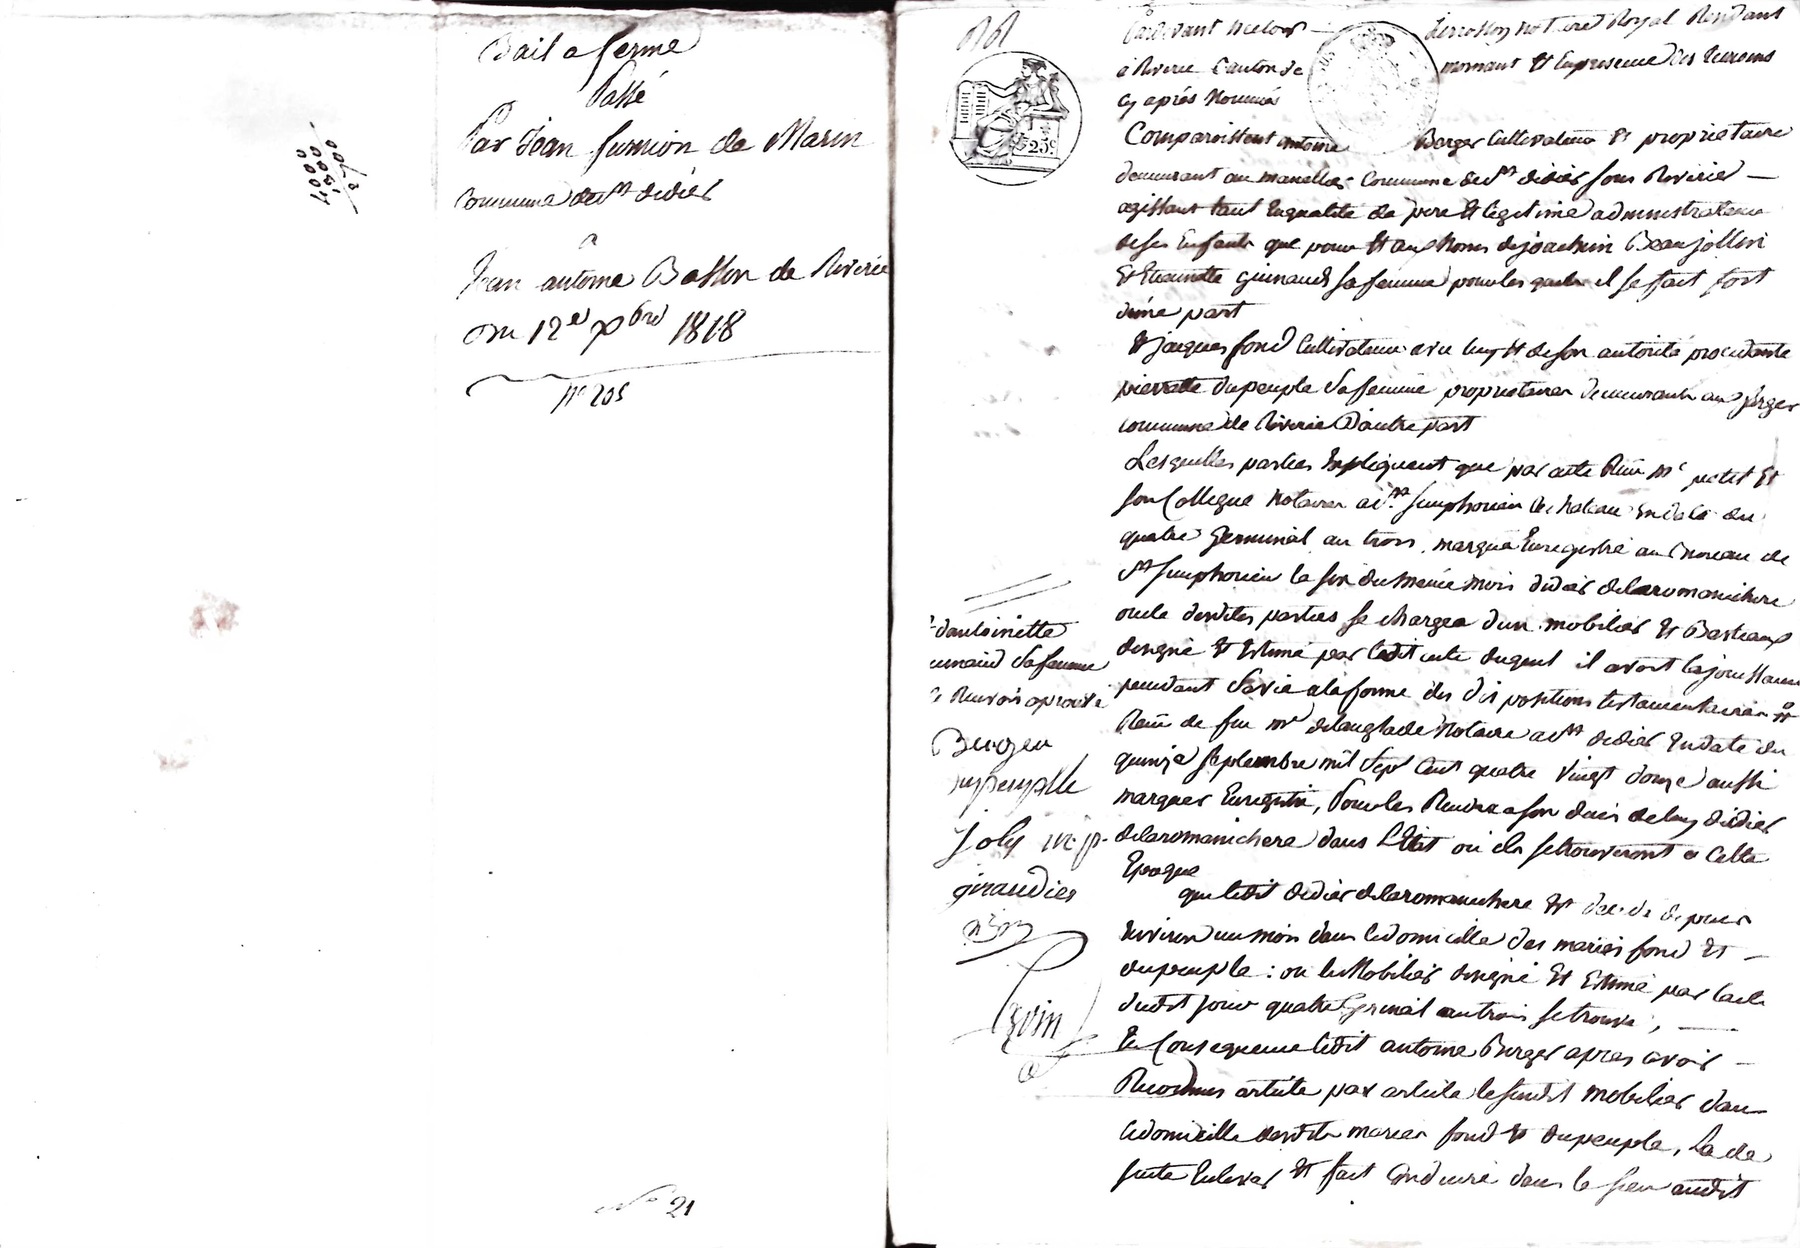 Bail a ferme
Passé
Par Jean fumion de Marin
Commune de st didier
a
Jean antoine Basson de Riverie
Du 12e Xbre 1818
n° 205
2700
1300
4000
N° 21
Pardevant notaire Royal Residant
a Riverie Canton de mornant Et En presence des temoins
cy aprés Nommés
Comparoissent antoine Berger Cultivateur & proprietaire
demeurant au Commune de st didier sous Riverie
agissant tant En qualité de pere & legitime administrateur
de ses Enfants que pour & aux Noms de joachim Beaujollin
& guinand sa femme pour les quels il se fait fort
d'une part
& jacques fond Cultivateur avec luy & de son autorité procedante
pierrette dupeuple sa femme proprietaires demeurants au
commune de Riverie D'autre part
Lesquelles parties Expliquent que par acte Reçu Me petit Et
son Collegue Notaires a st Simphorien le chateau En date du
quatre Germinal an trois, marqué Enregistré au Bureau de
st Simphorien le six du meme mois didier delaromanichere
oncle desdites parties se chargea d'un mobilier & Bestiaux
designé & Estimé par ledit acte duquel il avoit la jouissance
pendant sa vie a la forme des dispositions testamentaires
Reçu de feu me delanglade Notaire a st didier En date du
quinze septembre mil sept cent quatre vingt douze aussi
marqué Enregistré, Pour les Rendre a son deces de luy didier
delaromanichere dans L'Etat où ils se trouveront a Cette
Epoque
que ledit didier delaromanichere Est decedé depuis
Environ un mois dans le domicille des mariés fond &
dupeuple : ou le Mobilier designé Et Estimé par l'acte
dudit jour quatre Germinal an trois se trouve,
En Consequence ledit antoine Berger apres avoir
Reconnus article par article le susdit mobilier dans
le domicille desdits mariés fond & dupeuple, La de
suite Enlever & fait Conduire dans le sien audit
d'antoinette
sa femme
Renvoi aprouvé
Berger
dupeuple
Joly
giraudier